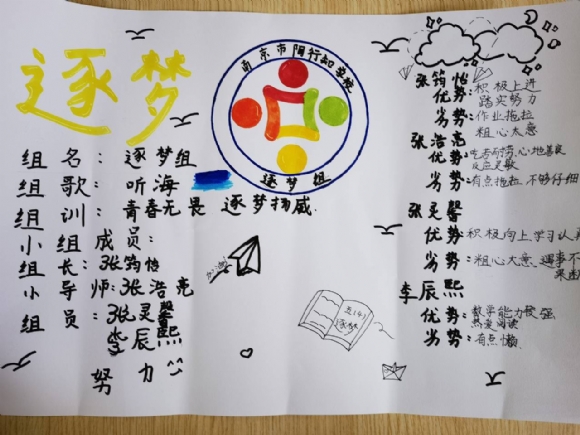 逐梦
南京市陶行知学校
逐梦组
组名：逐梦组
组歌：听海
组训：青春无畏 逐梦扬威.
小组成员：
组长：张筠怡
小导师：张浩亮
组员：张灵馨
李辰熙
努力
加油
逐梦
张筠怡
优势：积极上进
踏实努力
劣势：作业拖拉
粗心大意
张浩亮
优势：吃苦耐劳,心地善良
劣势：有点拖拉,不够仔细
张灵馨
优势：积极向上,学习认真
劣势：粗心大意,遇事不
李辰熙
优势：数学能力较强
热爱阅读
劣势：有点懒